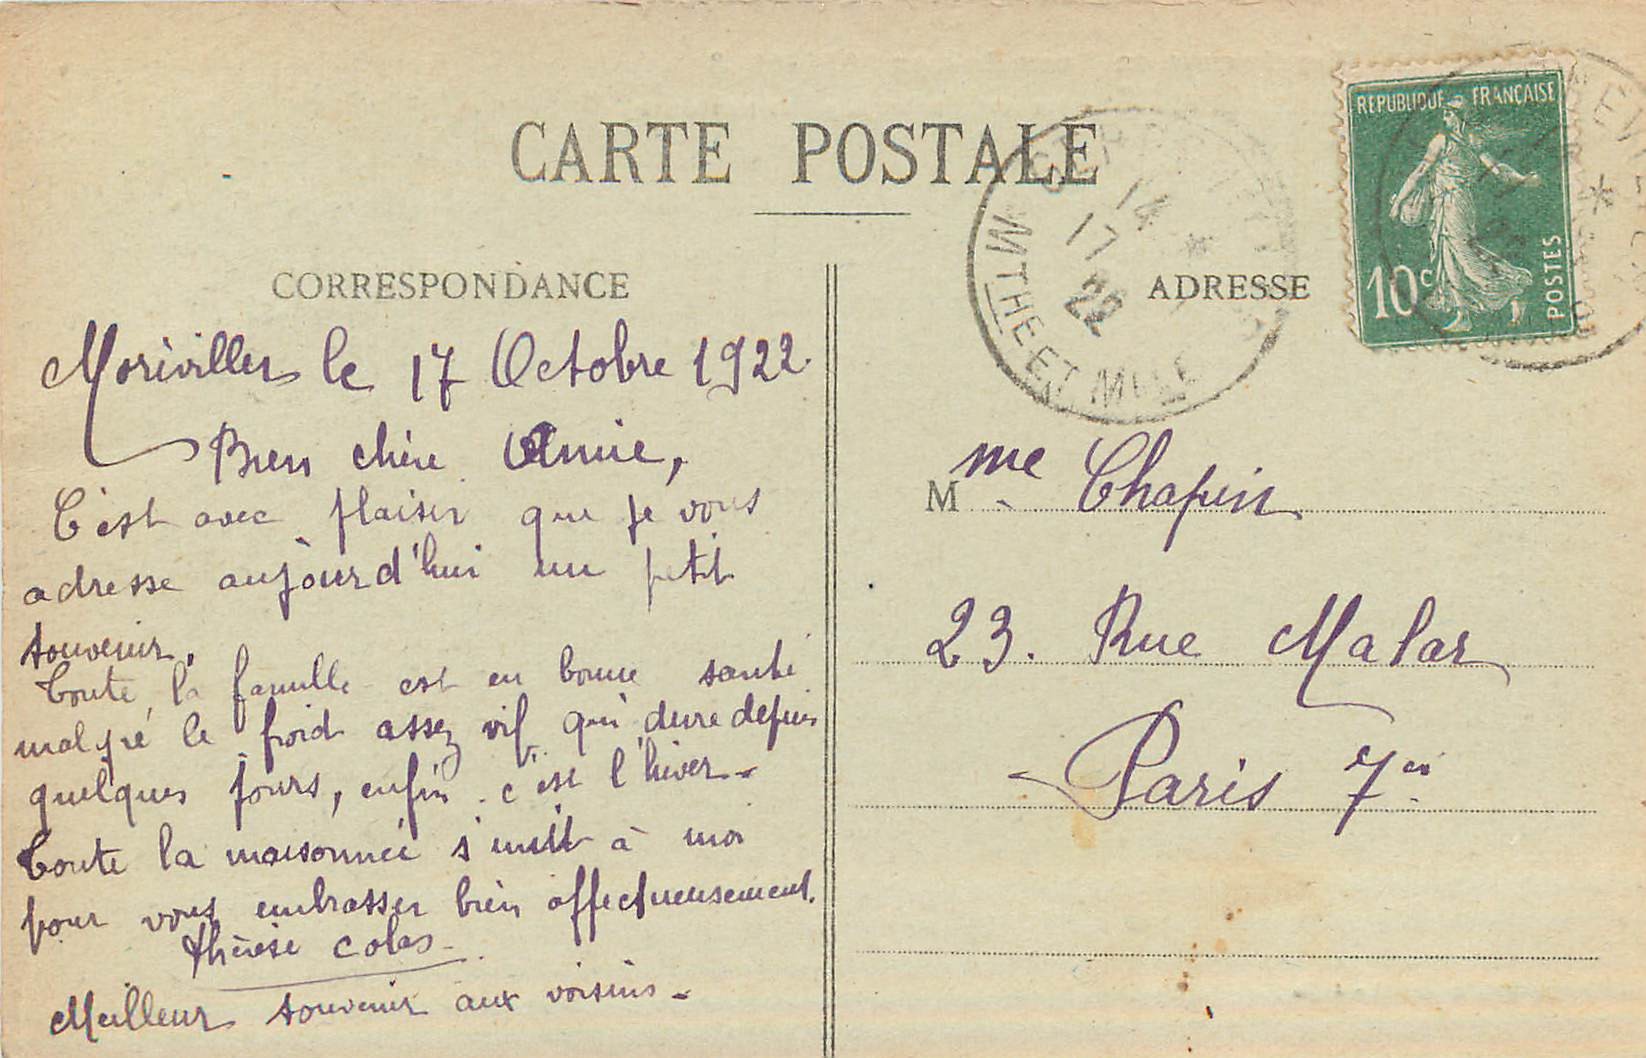 CARTE POSTALE
CORRESPONDANCE
Morivilles le 17 Octobre 1922
Bien chère Amie,
C'est avec plaisir que je vous
adresse aujourd'hui un petit
souvenir.
Toute la famille est en bonne santé
malgré le froid assez vif qui dure depuis
quelques jours, enfin c'est l'hiver -
Toute la maisonnée s'unit à moi
pour vous embrasser bien affectueusement.
Thérèse Colas -
Meilleur souvenir aux voisins -
REPUBLIQUE FRANÇAISE
10c POSTES
14 *
17
22
MTHE ET MLLE
ADRESSE
Mme Chapin
23. Rue Malar
- Paris 7en